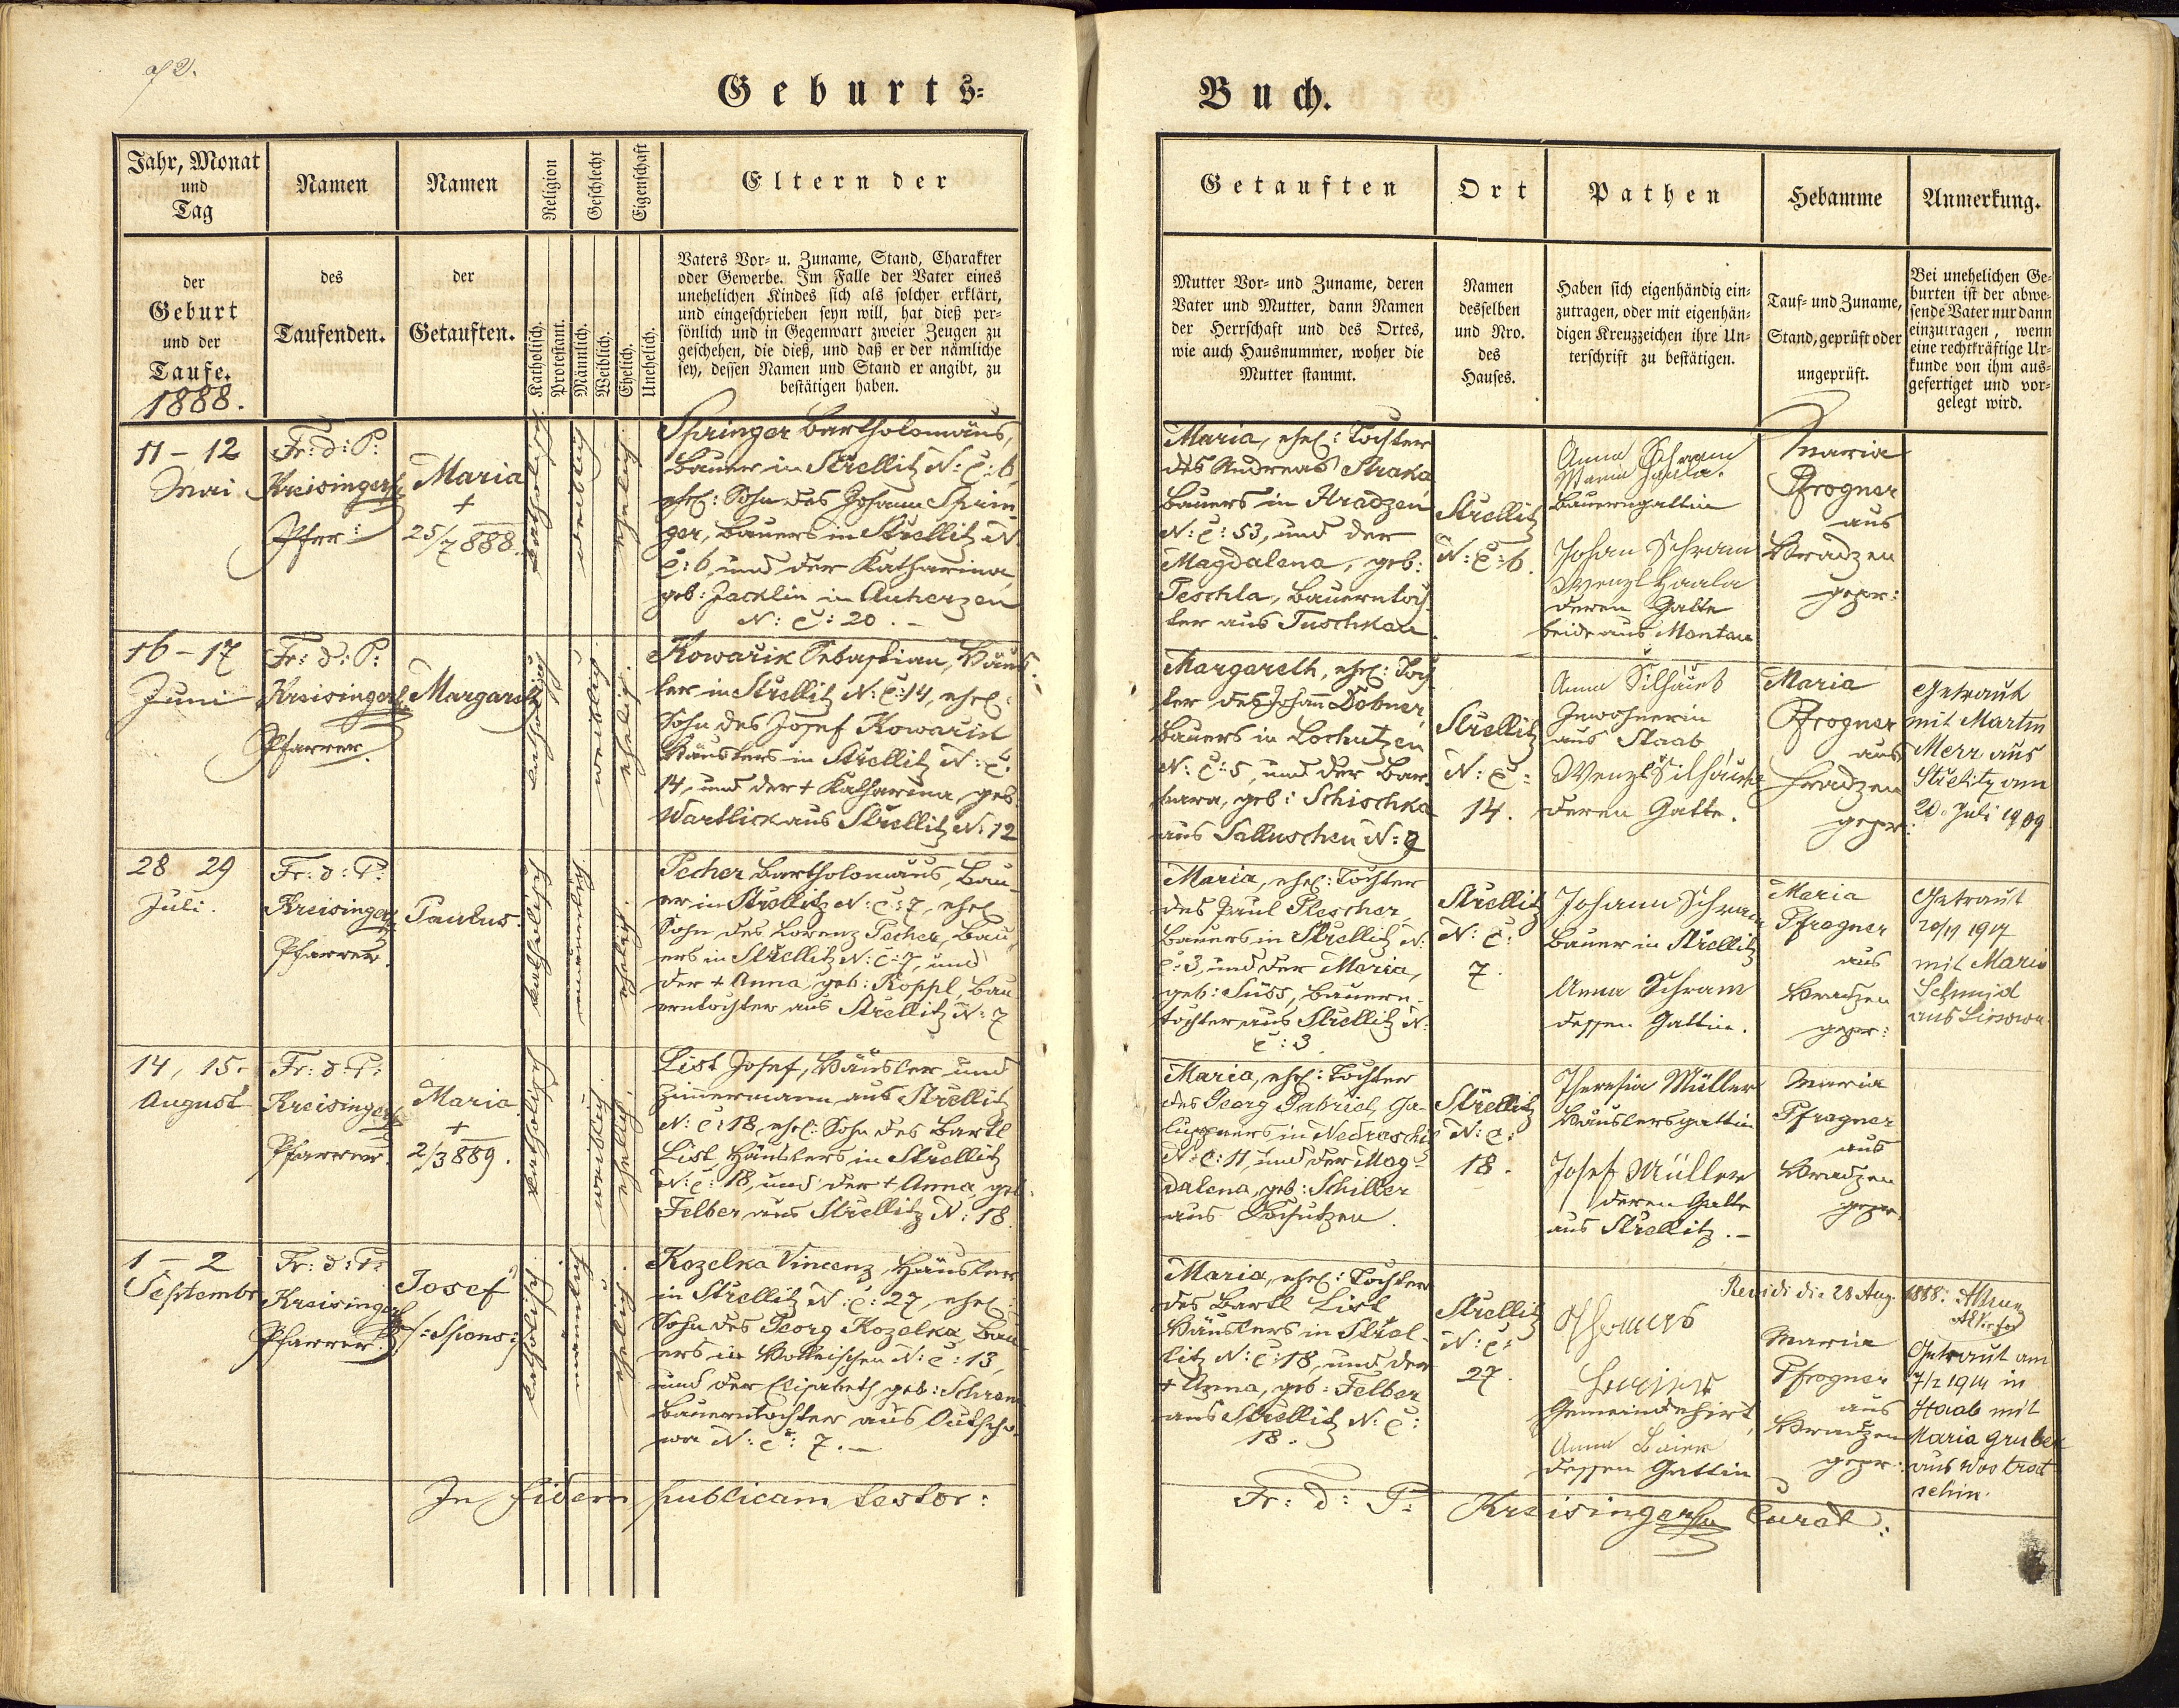 Geburts-
Buch.
Jahr, Monat
und
Tag
der
Geburt
und der
Taufe.
1888.
Namen
des
Taufenden.
Namen
der
Getauften.
Religion
Katholisch.
Protestant.
Geschlecht
Männlich.
Weiblich.
Eigenschaft
Ehelich.
Unehelich.
Eltern der
Vaters Vor- u. Zuname, Stand, Charakter
oder Gewerbe. Im Falle der Vater eines
unehelichen Kindes sich als solcher erklärt,
und eingeschrieben seyn will, hat dieß per-
sönlich und in Gegenwart zweier Zeugen zu
geschehen, die dieß, und daß er der nämliche
sey, dessen Namen und Stand er angibt, zu
bestätigen haben.
Getauften
Mutter Vor- und Zuname, deren
Vater und Mutter, dann Namen
der Herrschaft und des Ortes,
wie auch Hausnummer, woher die
Mutter stammt.
Ort
Namen
desselben
und Nro.
des
Hauses.
Pathen
Haben sich eigenhändig ein-
zutragen, oder mit eigenhän-
digen Kreuzzeichen ihre Un-
terschrift zu bestätigen.
Hebamme
Tauf- und Zuname,
Stand, geprüft oder
ungeprüft.
Anmerkung.
Bei unehelichen Ge-
burten ist der abwe-
sende Vater nur dann
einzutragen, wenn
eine rechtkräftige Ur-
kunde von ihm aus-
gefertiget und vor-
gelegt wird.
11 - 12
Mai
Fr: d: P:
Kreisinger
Pfrr:
Maria
+
25/7 888.
katholisch
weiblich
ehelich
Springer Bartholomäus,
Bauer in Střellitz N: C: 6,
ehel: Sohn des Johann Sprin-
ger, Bauers in Střellitz N.
C: 6, und der Katharina,
geb: Jacklin in Auherzen
N: C: 20. -
Maria, ehel: Tochter
des Andreas Straka,
Bauers in Hradzen
N: C: 53, und der
Magdalena, geb:
Peschla, Bauerntoch-
ter aus Tuschkau.
Střellitz
N: C: 6.
Anna Schram
Maria
Bauersgattin
Johan Schram
Wenzl Haala
deren Gatte
beide aus Mantau
Maria
Pfrogner
aus
Hradzen
gepr:
16 - 17
Juni
Fr: d: P:
Kreisinger
Pfarrer.
Margareth
katholisch
weiblich
ehelich
Kowařik Sebastian, Häus-
ler in Střellitz N: C: 14, ehel:
Sohn des Josef Kowařik
Häuslers in Střellitz N: C:
14, und der + Katharina, geb.
Wartlick aus Střellitz N: 12
Margareth, ehel: Toch-
ter des Johann Dobner,
Bauers in Lochutzen
N: C: 5, und der Bar-
bara, geb: Schischka
aus Salluschen N: 9
Střellitz
N: C:
14.
Anna Silhánek
Inwohnerin
aus Staab
Wenzl Silhánek
deren Gatte.
Maria
Pfrogner
aus
Hradzen
gepr:
Getraut
mit Martin
Merz aus
Střelitz am
20. Juli 1909
28 29
Juli.
Fr: d: P:
Kreisinger
Pfarrer.
Paulus.
katholisch
männlich
ehelich
Pecher Bartholomäus, Bau-
er in Střellitz N: C: 7, ehel
Sohn des Lorenz Pecher, Bau-
ers in Střellitz N: C: 7, und
der + Anna, geb: Koppl, Bau-
erntochter aus Střellitz N: 7
Maria, ehel: Tochter
des Paul Plescher,
Bauers in Střellitz N:
C: 3, und der Maria,
geb: Süss, Bauern-
tochter aus Střellitz N:
C: 3.
Střellitz
N: C:
7.
Johann Schram
Bauer in Střellitz
Anna Schram
dessen Gattin.
Maria
Pfrogner
aus
Hradzen
gepr:
Getraut
20/11 1917
mit Marie
Schmid
aus Lissowa.
14, 15.
August
Fr: d: P:
Kreisinger
Pfarrer.
Maria
+
2/3 889.
katholisch
weiblich
ehelich
List Josef, Häusler und
Zimermann aus Střellitz
N: C: 18, ehel: Sohn des Bartl
List Häuslers in Střellitz
N: C: 18, und der + Anna, geb.
Felber aus Střellitz N: 18.
Maria, ehel: Tochter
des Georg Gabriel, Cha-
luppners in Nedraschitz
N: C: 11, und der Mag-
dalena, geb: Schiller
aus Lochutzen.
Střellitz
N: C:
18.
Theresia Müller
Häuslersgattin
Josef Müller
deren Gatte
aus Střellitz. -
Maria
Pfrogner
aus
Hradzen
gepr.
1 - 2
Septembr
Fr: d: P:
Kreisinger
Pfarrer.
Josef
/: Spons :/
katholisch
männlich
ehelich
Kozelka Vincenz, Häusler
in Střellitz N: C: 27, ehel:
Sohn des Georg Kozelka, Bau-
ers in N: C: 13,
und der Elisabeth, geb: Schram
Bauerntochter aus Autscho-
wa N: C: 7. -
Maria, ehel: Tochter
des Bartl List
Häuslers in Střel-
litz N: C: 18, und der
+ Anna, geb: Felber
aus Střellitz N: C:
18.
Střellitz
N: C:
27.
Thomas
Gemeindehirt,
Anna Baier
dessen Gattin
Revidi die 28 Aug. 1888.
Maria
Pfrogner
aus
Hradzen
gepr:
Getraut am
7/2 1914 in
Staab mit
Maria Gruber
aus Wostrat-
schin.
In fidem publicam testor:
Fr: d: P: Kreisinger Curat: